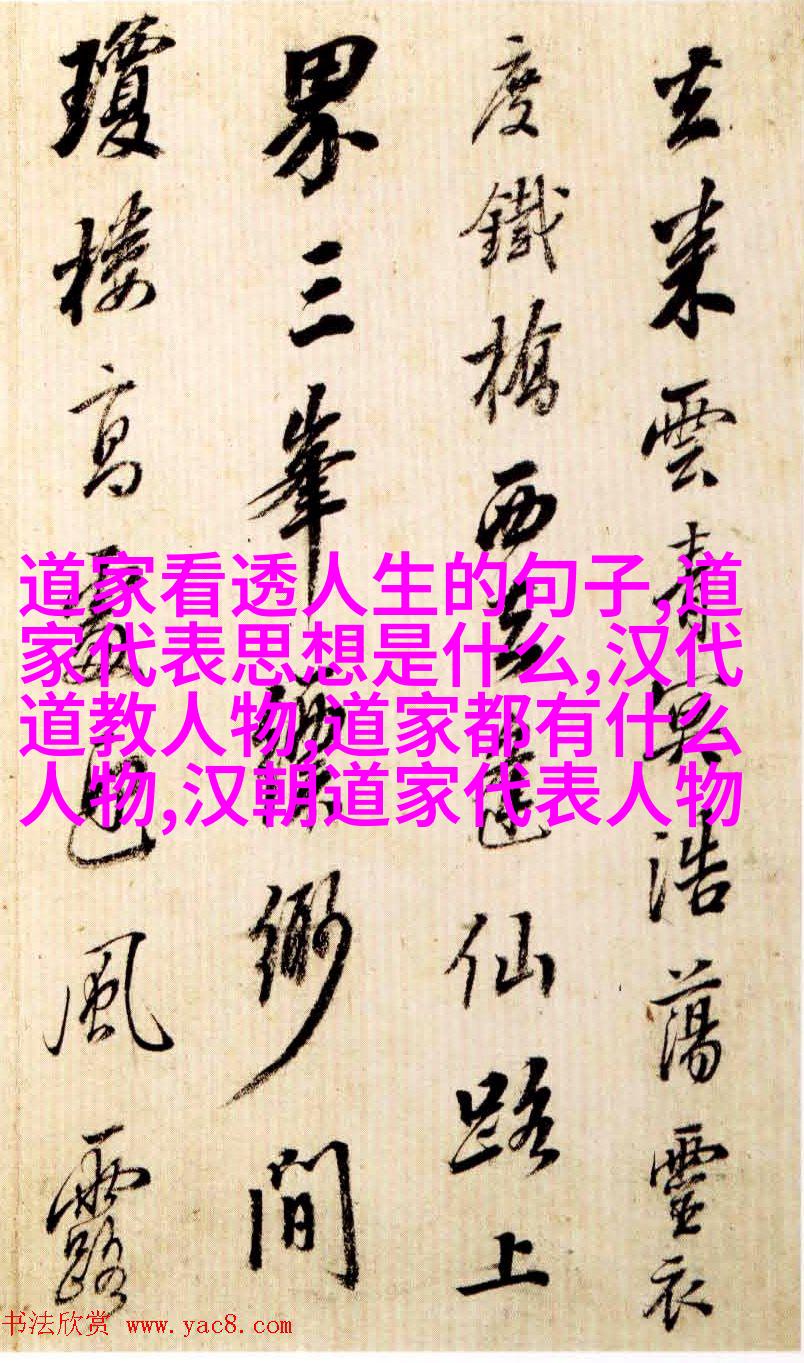 去来雲青冥浩蕩靈衣
度鐵橋西去是仙路上
界三峯縹緲間
瓊樓高處逈風露
道家看透人生的句子,道
家代表思想是什么,汉代
道教人物,道家都有什么
人物,汉朝道家代表人物
书法欣赏 www.yac8.com